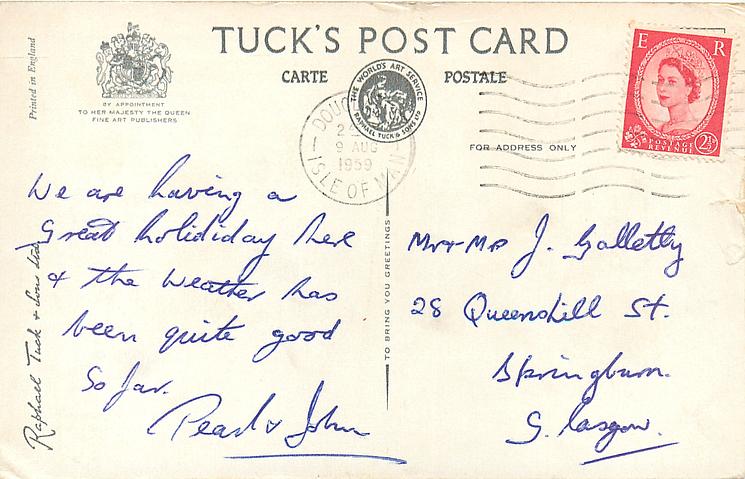 TUCK'S POST CARD
CARTE POSTALE
Printed in England
BY APPOINTMENT
TO HER MAJESTY THE QUEEN
FINE ART PUBLISHERS
THE WORLD'S ART SERVICE
RAPHAEL TUCK & SONS LTD
E R
POSTAGE
REVENUE
2½
DOUG
9 AUG
1959
ISLE OF MAN
FOR ADDRESS ONLY
We are having a
Great holididay here
& the weather has
been quite good
So far.
Pearl & John
Raphael Tuck & Sons Ltd
TO BRING YOU GREETINGS
Mr + Mrs J. Galletly
28 Queenshill St.
Springburn.
Glasgow.